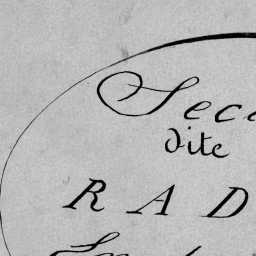 Sec
dite
RAD